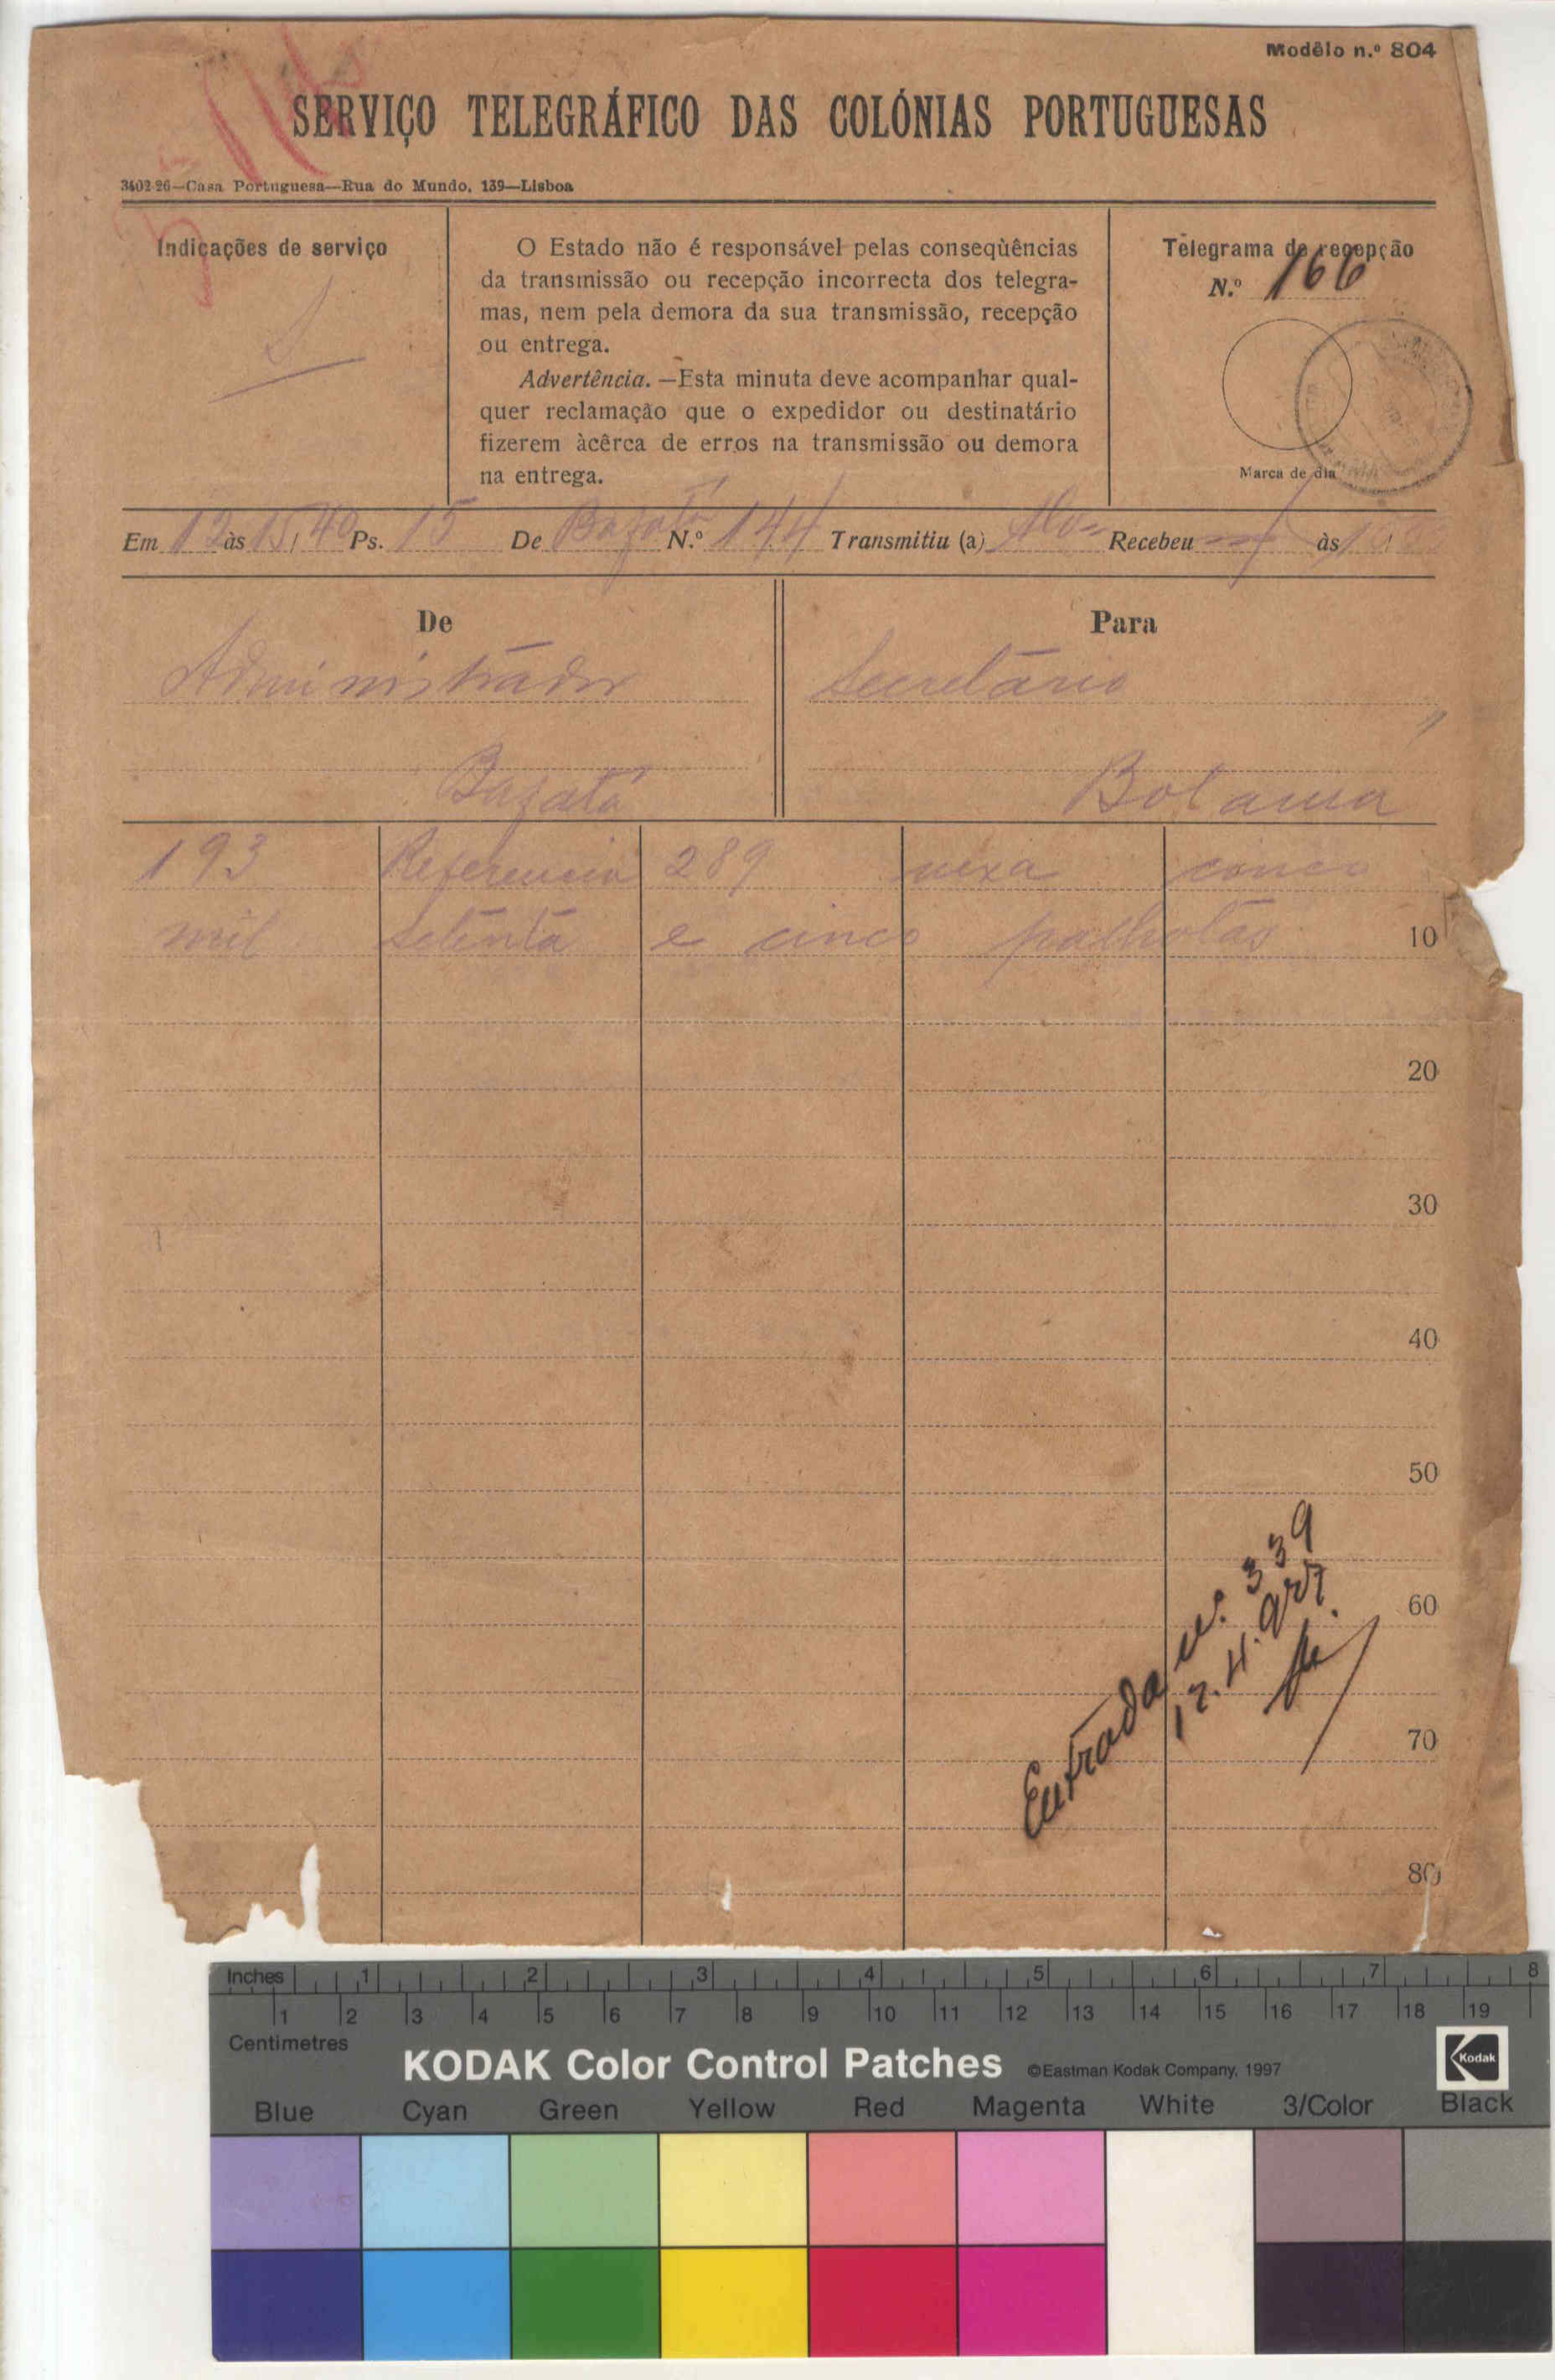 Modêlo n.º 804
SERVIÇO TELEGRÁFICO DAS COLÓNIAS PORTUGUESAS
3402-26—Casa Portuguesa—Rua do Mundo, 139—Lisboa
Indicações de serviço
O Estado não é responsável pelas conseqüências
da transmissão ou recepção incorrecta dos telegra-
mas, nem pela demora da sua transmissão, recepção
ou entrega.
Advertência. —Esta minuta deve acompanhar qual-
quer reclamação que o expedidor ou destinatário
fizerem àcêrca de erros na transmissão ou demora
na entrega.
Telegrama de recepção
N.º 166
Marca de dia
Em 12 às 15,40 Ps. 15 De Bafatá N.º 144 Transmitiu (a) Recebeu às
De
Administrador
Bafatá
Para
Secretário
Bolama
193 Referencia 289 nexa cinco
mil setenta e cinco palhotas 10
20
30
40
50
60
70
80
Entrada n.º 339
12.4.927
Inches 1 2 3 4 5 6 7 8
1 2 3 4 5 6 7 8 9 10 11 12 13 14 15 16 17 18 19
Centimetres
KODAK Color Control Patches ©Eastman Kodak Company, 1997 Kodak
Blue Cyan Green Yellow Red Magenta White 3/Color Black